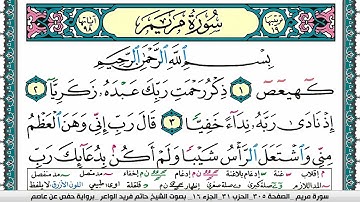 سُورَةُ مَرْيَمَ
بِسْمِ ٱللَّهِ ٱلرَّحْمَٰنِ ٱلرَّحِيمِ
كٓهيعٓصٓ ١ ذِكْرُ رَحْمَتِ رَبِّكَ عَبْدَهُۥ زَكَرِيَّآ ٢
إِذْ نَادَىٰ رَبَّهُۥ نِدَآءً خَفِيًّا ٣ قَالَ رَبِّ إِنِّي وَهَنَ ٱلْعَظْمُ
مِنِّي وَٱشْتَعَلَ ٱلرَّأْسُ شَيْبًا وَلَمْ أَكُنۢ بِدُعَآئِكَ رَبِّ
سورة مريم الصفحة ٣٠٥ الحزب ٣١ الجزء ١٦ بصوت الشيخ حاتم فريد الواعر برواية حفص عن عاصم